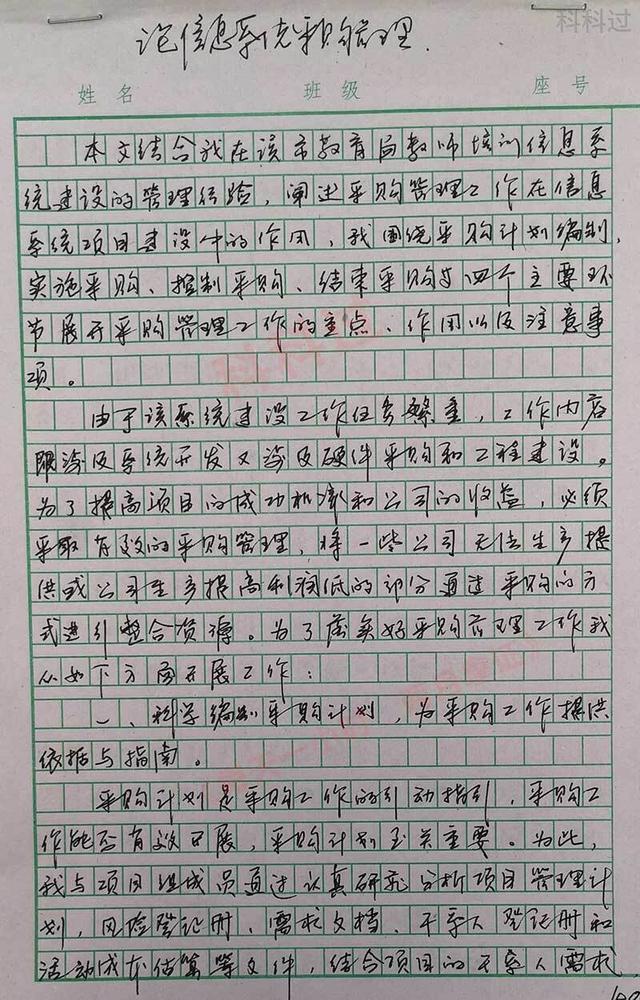 科科过
论信息系统采购管理.
姓名 班级 座号
本文结合我在该市教育局教师培训信息系
统建设的管理经验，阐述采购管理工作在信息
系统项目建设中的作用，我围绕采购计划编制、
实施采购、控制采购、结束采购与四个主要环
节展开采购管理工作的重点、作用以及注意事
项。
由于该系统建设工作任务繁重，工作内容
即涉及系统开发又涉及硬件采购和工程建设。
为了提高项目的成功机率和公司的收益，必须
采取有效的采购管理，将一些公司无法生产提
供或公司生产提高利润低的部分通过采购的方
式进引整合资源。为了落实好采购管理工作我
从如下方面开展工作：
一、科学编制采购计划，为采购工作提供
依据与指南。
采购计划是采购工作的引动指引，采购工
作能否有效开展，采购计划至关重要。为此，
我与项目组成员通过认真研究分析项目管理计
划，风险登记册、需求文档、干系人登记册和
活动成本估算等文件，结合项目的干系人需求